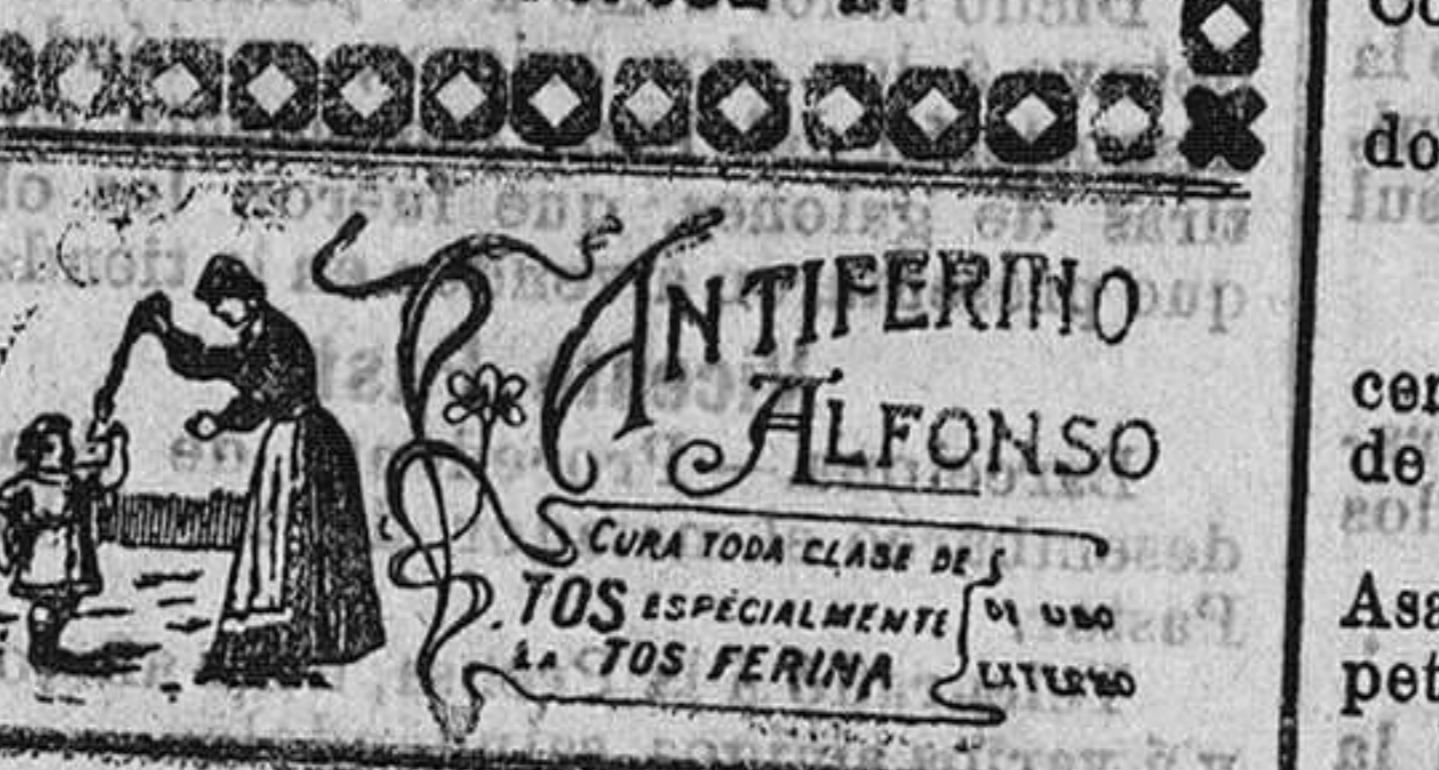 ANTIFERINO
ALFONSO
CURA TODA CLASE DE
TOS ESPECIALMENTE
LA TOS FERINA
DE USO
EXTERNO
do
cer
de
Asa
pet